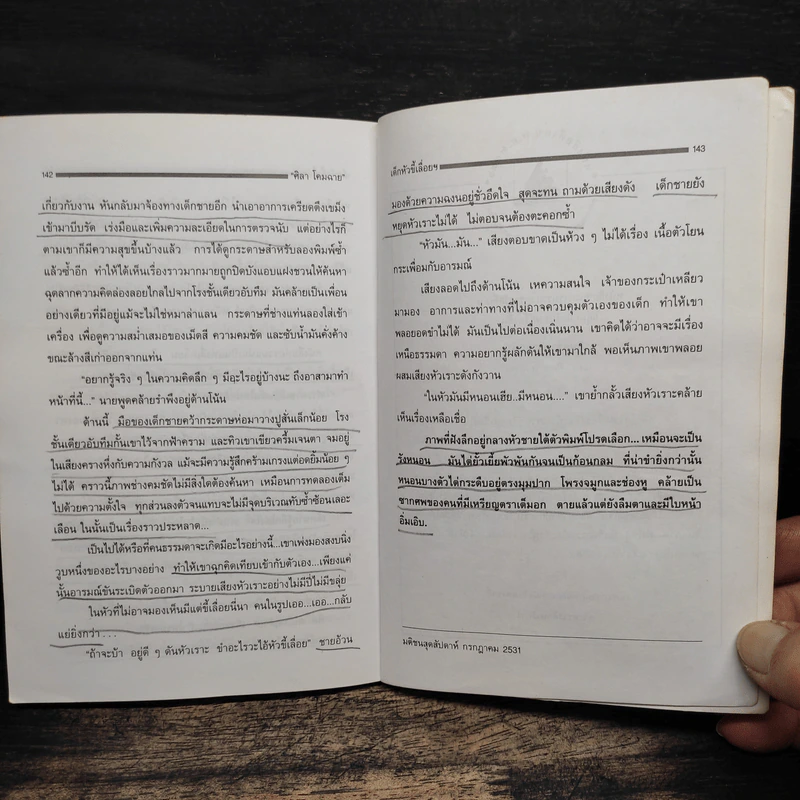 142 "ศิลา โคมฉาย"
เกี่ยวกับงาน หันกลับมาจ้องทางเด็กชายอีก นำเอาอาการเครียดตึงเขม็ง
เข้ามาบีบรัด เร่งมือและเพิ่มความละเอียดในการตรวจนับ แต่อย่างไรก็
ตามเขาก็มีความสุขขึ้นบ้างแล้ว การได้ดูกระดาษสำหรับลองพิมพ์ซ้ำ
แล้วซ้ำอีก ทำให้ได้เห็นเรื่องราวมากมายถูกปิดบังแอบแฝงชวนให้ค้นหา
ฉุดลากความคิดล่องลอยไกลไปจากโรงชั้นเดียวอับทึม มันคล้ายเป็นเพื่อน
อย่างเดียวที่มีอยู่แม้จะไม่ใช่หมาล่าแลน กระดาษที่ช่างแท่นลองใส่เข้า
เครื่อง เพื่อดูความสม่ำเสมอของเม็ดสี ความคมชัด และซับน้ำมันคั่งค้าง
ขณะล้างสีเก่าออกจากแท่น
"อยากรู้จริง ๆ ในความคิดลึก ๆ มีอะไรอยู่บ้างนะ ถึงอาสามาทำ
หน้าที่นี้..." นายพูดคล้ายรำพึงอยู่ด้านโน้น
ด้านนี้ มือของเด็กชายคว้ากระดาษห่อมาวางปูสั่นเล็กน้อย โรง
ชั้นเดียวอับทึมกั้นเขาไว้จากฟ้าคราม และทิวเขาเขียวครึ้มเจนตา จมอยู่
ในเสียงครางหึ่งกับความกังวล แม้จะมีความรู้สึกคร้ามเกรงแต่อดยิ้มน้อย ๆ
ไม่ได้ คราวนี้ภาพช่างคมชัดไม่มีสิ่งใดต้องค้นหา เหมือนการทดลองเต็ม
ไปด้วยความตั้งใจ ทุกส่วนลงตัวจนแทบจะไม่มีจุดบริเวณทับซ้ำซ้อนเลอะ
เลือน ในนั้นเป็นเรื่องราวประหลาด...
เป็นไปได้หรือที่คนธรรมดาจะเกิดมีอะไรอย่างนี้...เขาเพ่งมองสงบนิ่ง
วูบหนึ่งของอะไรบางอย่าง ทำให้เขาฉุกคิดเทียบเข้ากับตัวเอง...เพียงแค่
นั้นอารมณ์ขันระเบิดตัวออกมา ระบายเสียงหัวเราะอย่างไม่มีปี่ไม่มีขลุ่ย
ในหัวที่ไม่อาจมองเห็นมีแต่ขี้เลื่อยนี่นา คนในรูปเออ...เออ...กลับ
แย่ยิ่งกว่า...
"ถ้าจะบ้า อยู่ดี ๆ ดันหัวเราะ ขำอะไรวะไอ้หัวขี้เลื่อย" ชายอ้วน
เด็กหัวขี้เลื่อยฯ 143
มองด้วยความฉงนอยู่ชั่วอึดใจ สุดจะทน ถามด้วยเสียงดัง เด็กชายยัง
หยุดหัวเราะไม่ได้ ไม่ตอบจนต้องตะคอกซ้ำ
"หัวมัน...มัน..." เสียงตอบขาดเป็นห้วง ๆ ไม่ได้เรื่อง เนื้อตัวโยน
กระเพื่อมกับอารมณ์
เสียงลอดไปถึงด้านโน้น เหความสนใจ เจ้าของกระเป๋าเหลียว
มามอง อาการและท่าทางที่ไม่อาจควบคุมตัวเองของเด็ก ทำให้เขา
พลอยอดขำไม่ได้ มันเป็นไปต่อเนื่องเนิ่นนาน เขาคิดได้ว่าอาจจะมีเรื่อง
เหนือธรรมดา ความอยากรู้ผลักดันให้เขามาใกล้ พอเห็นภาพเขาพลอย
ผสมเสียงหัวเราะดังกังวาน
"ในหัวมันมีหนอนเฮีย..มีหนอน...." เขาย้ำกลั้วเสียงหัวเราะคล้าย
เห็นเรื่องเหลือเชื่อ
ภาพที่ฝังลึกอยู่กลางหัวชายใต้ตัวพิมพ์โปรดเลือก...เหมือนจะเป็น
รังหนอน มันไต่ยั้วเยี้ยพัวพันกันจนเป็นก้อนกลม ที่น่าขำยิ่งกว่านั้น
หนอนบางตัวไต่กระดืบอยู่ตรงมุมปาก โพรงจมูกและช่องหู คล้ายเป็น
ซากศพของคนที่มีเหรียญตราเต็มอก ตายแล้วแต่ยังลืมตาและมีใบหน้า
อิ่มเอิบ.
มติชนสุดสัปดาห์ กรกฎาคม 2531